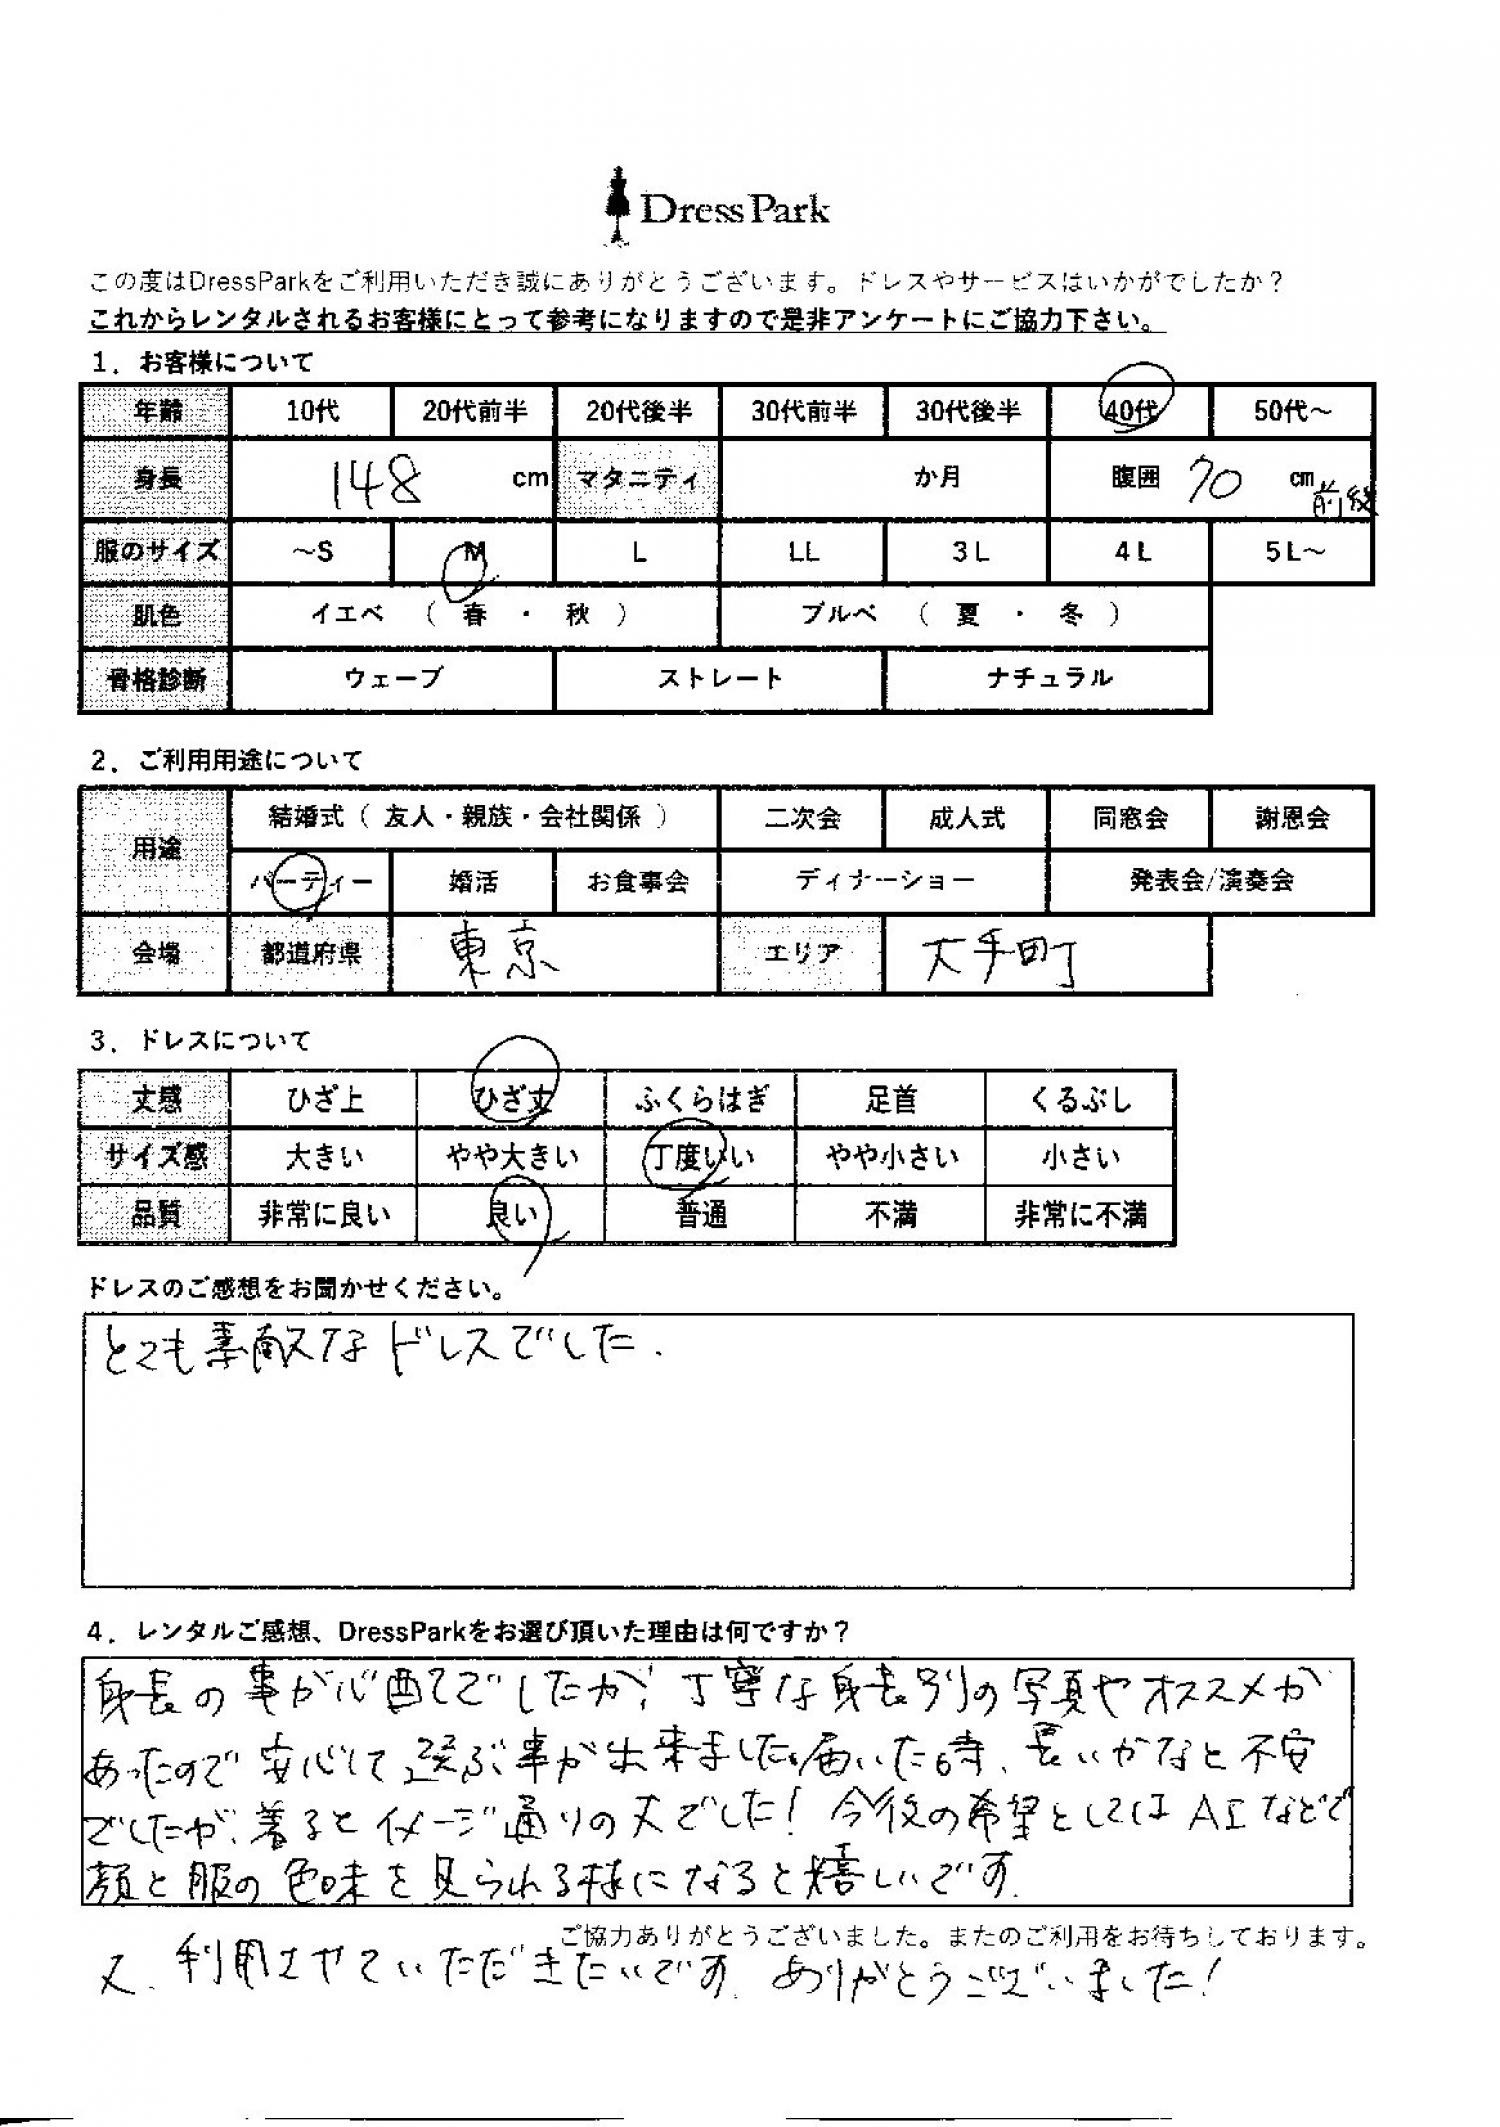 DressPark
この度はDressParkをご利用いただき誠にありがとうございます。ドレスやサービスはいかがでしたか？
これからレンタルされるお客様にとって参考になりますので是非アンケートにご協力下さい。
1．お客様について
年齢 10代 20代前半 20代後半 30代前半 30代後半 40代 50代～
身長 148 cm マタニティ か月 腹囲 70 cm 前後
服のサイズ ～S M L LL 3L 4L 5L～
肌色 イエベ （ 春 ・ 秋 ） ブルベ （ 夏 ・ 冬 ）
骨格診断 ウェーブ ストレート ナチュラル
2．ご利用用途について
用途 結婚式（ 友人・親族・会社関係 ） 二次会 成人式 同窓会 謝恩会
パーティー 婚活 お食事会 ディナーショー 発表会/演奏会
会場 都道府県 東京 エリア 大手町
3．ドレスについて
丈感 ひざ上 ひざ丈 ふくらはぎ 足首 くるぶし
サイズ感 大きい やや大きい 丁度いい やや小さい 小さい
品質 非常に良い 良い 普通 不満 非常に不満
ドレスのご感想をお聞かせください。
とても素敵なドレスでした．
4．レンタルご感想、DressParkをお選び頂いた理由は何ですか？
身長の事が心配でしたが、丁寧な身長別の写真やオススメが
あったので安心して選ぶ事が出来ました。届いた時、長いかなと不安
でしたが、着るとイメージ通りの丈でした！今後の希望としてはAIなどで
顔と服の色味を見られる様になると嬉しいです．
ご協力ありがとうございました。またのご利用をお待ちしております。
又、利用させていただきたいです．ありがとうございました！